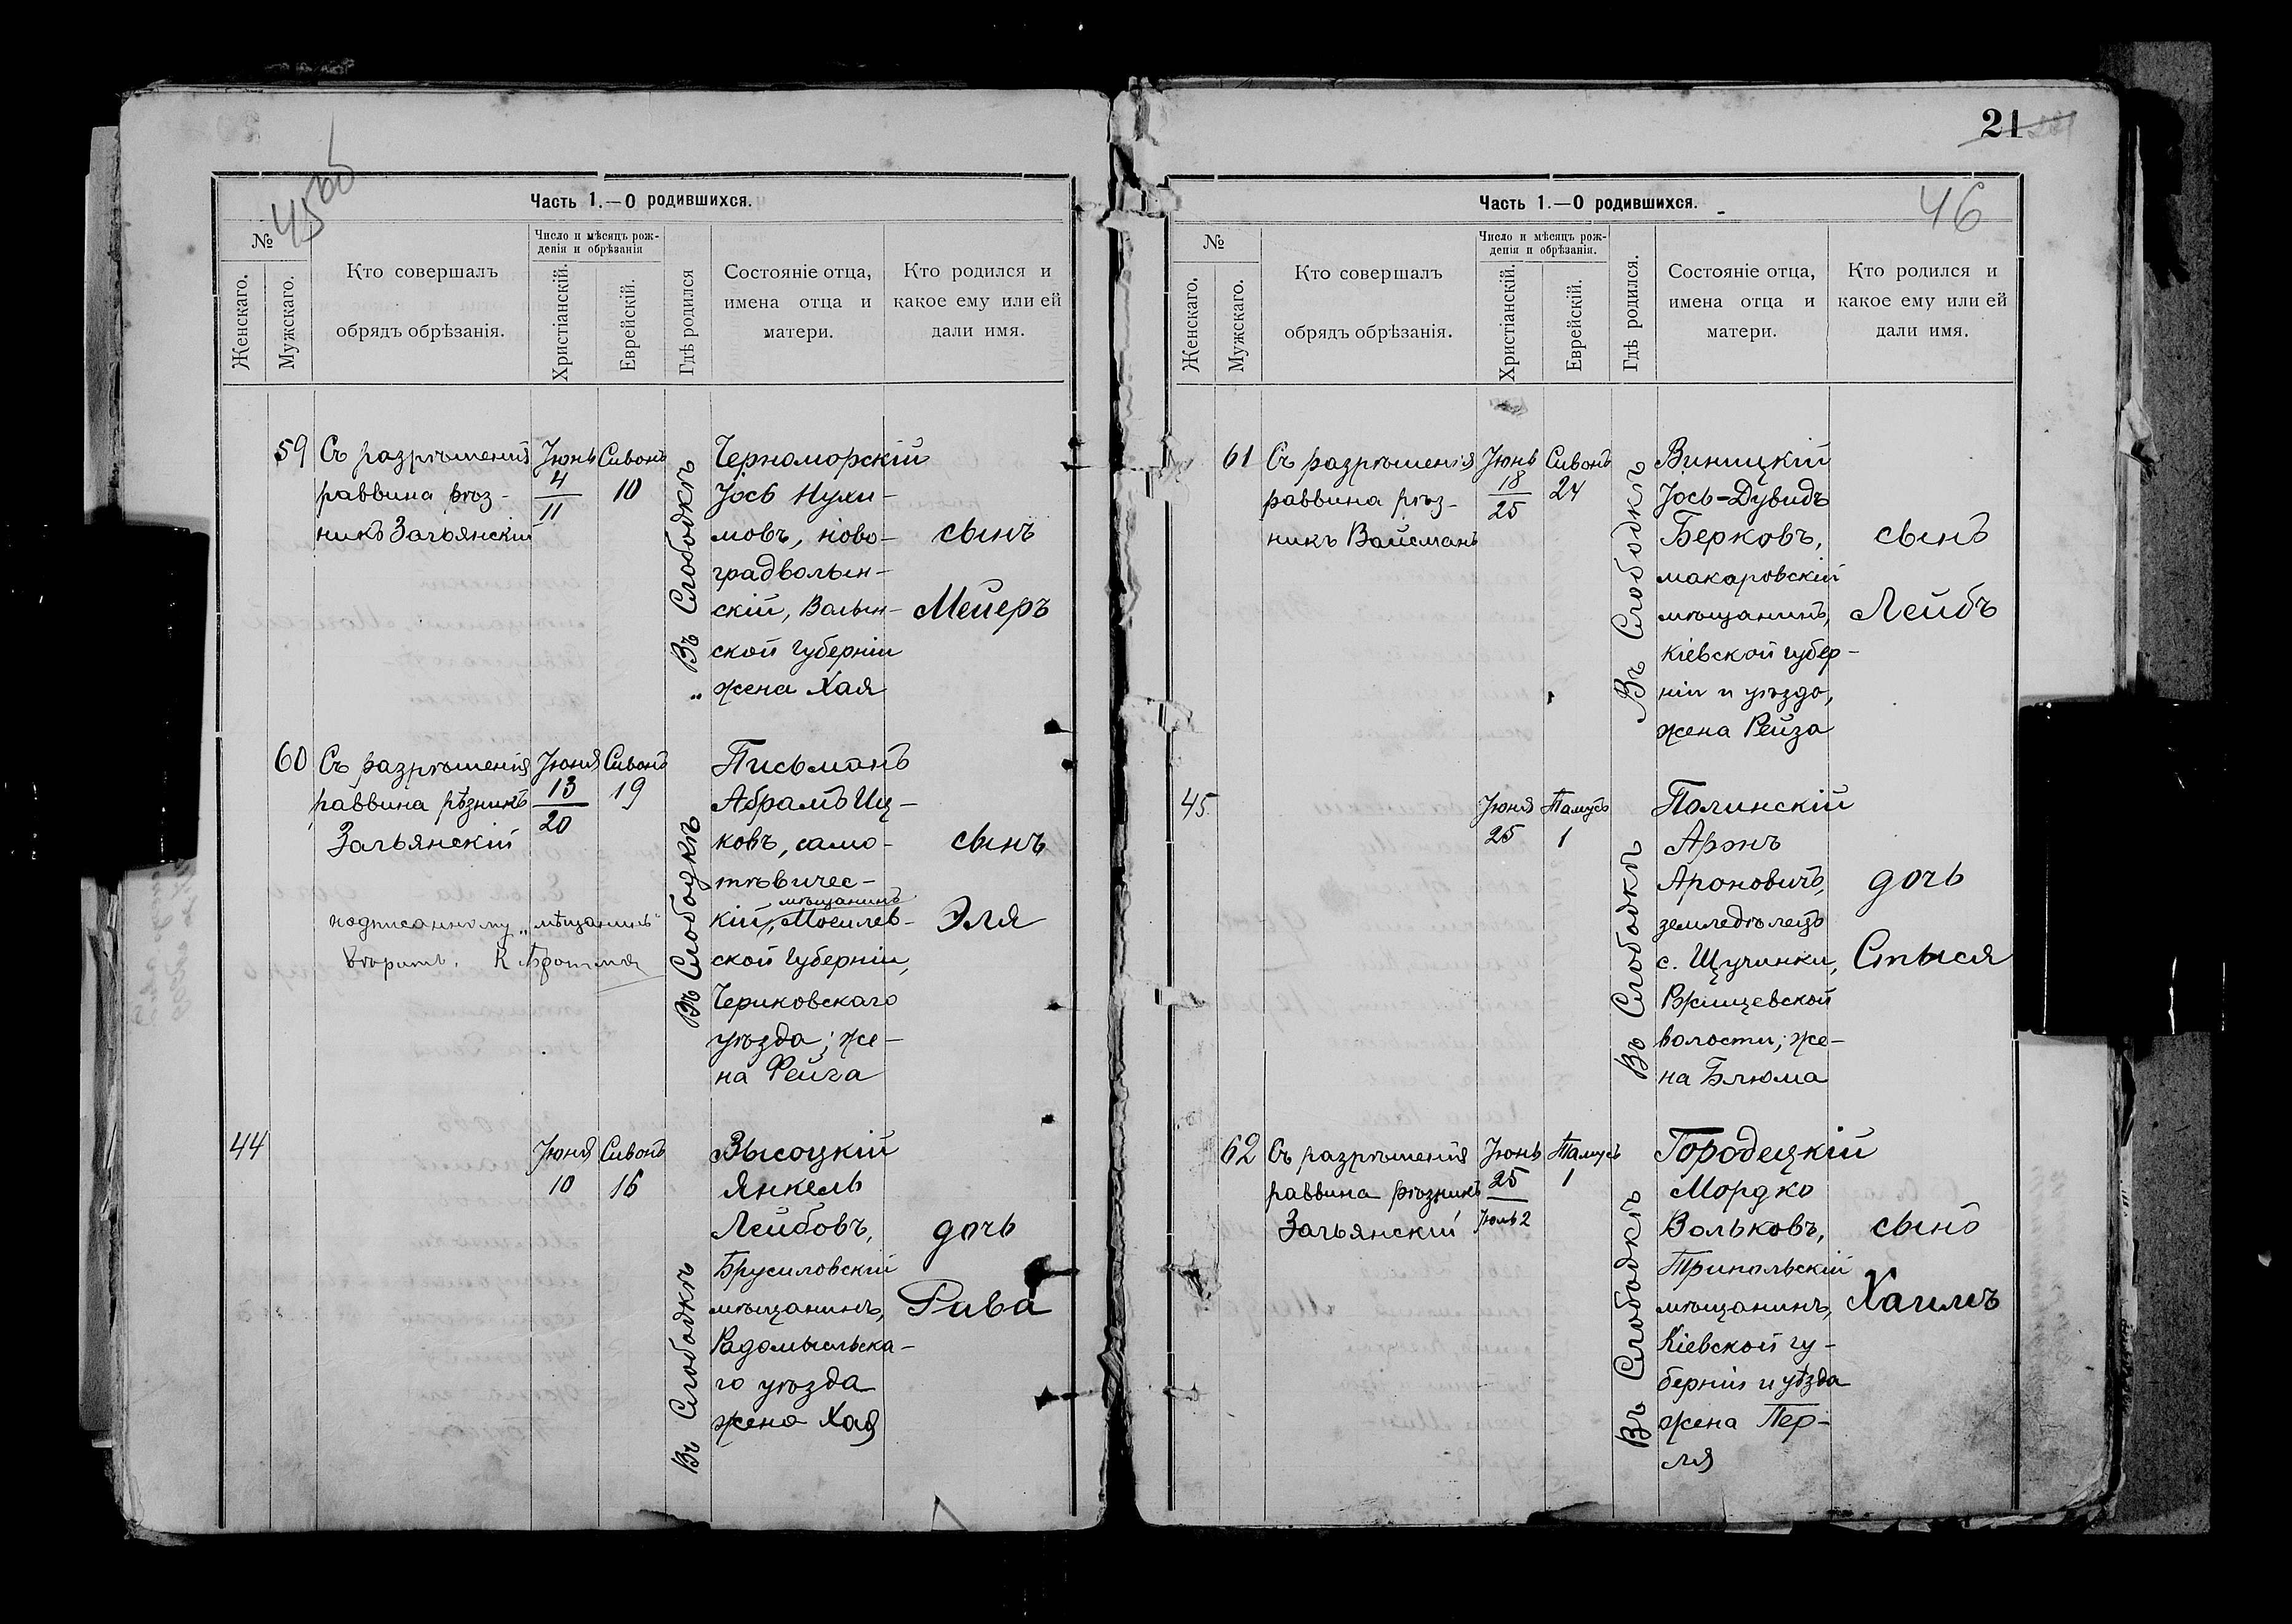 45 об
Часть 1.—О родившихся.
№
Женскаго.
Мужскаго.
Кто совершалъ
обрядъ обрѣзанія.
Число и мѣсяцъ рож-
денія и обрѣзанія
Христіанскій.
Еврейскій.
Гдѣ родился
Состояніе отца,
имена отца и
матери.
Кто родился и
какое ему или ей
дали имя.
59
Съ разрѣшенія
раввина рѣз-
никъ Загьянскій
Іюнь
4
11
Сивонъ
10
Въ Слободкѣ
Черноморскій
Іось Нухи-
мовъ, ново-
градволын-
скій, Волын-
ской губерніи
жена Хая
сынъ
Мейеръ
60
Съ разрѣшенія
раввина рѣзникъ
Загьянскій
Іюня
13
20
Сивонъ
19
Въ Слободкѣ
Письманъ
Абрамъ Иц-
ковъ, само-
тѣвичес-
мѣщанинъ
кій, Могилев-
ской губерніи,
Чериковскаго
уѣзда; же-
на Фейга
сынъ
Эля
надписанному „мѣщанинъ“
вѣрить.
44
Іюня
10
Сивонъ
16
Въ Слободкѣ
Высоцкій
Янкель
Лейбовъ,
Брусиловскій
мѣщанинъ,
Радомысльска-
го уѣзда
жена Хая
дочь
Рива
21
46
Часть 1.—О родившихся.
№
Женскаго.
Мужскаго.
Кто совершалъ
обрядъ обрѣзанія.
Число и мѣсяцъ рож-
денія и обрѣзанія.
Христіанскій.
Еврейскій.
Гдѣ родился.
Состояніе отца,
имена отца и
матери.
Кто родился и
какое ему или ей
дали имя.
61
Съ разрѣшенія
раввина рѣз-
никъ Вайсманъ
Іюнь
18
25
Сивонъ
24
Въ Слободкѣ
Виницкій
Іось-Дувидъ
Берковъ,
макаровскій
мѣщанинъ,
Кіевской губер-
ніи и уѣзда,
жена Рейза
сынъ
Лейбъ
45
Іюня
25
Тамузъ
1
Въ Слободкѣ
Полинскій
Аронъ
Ароновичъ,
земледѣлецъ
с. Щучинки,
Ржищевской
волости; же-
на Блюма
дочь
Стыся
62
Съ разрѣшенія
раввина рѣзникъ
Загьянскій
Іюнь
25
Іюль 2
Тамузъ
1
Въ Слободкѣ
Городецкій
Мордко
Вольковъ,
Трипольскій
мѣщанинъ,
Кіевской гу-
берніи и уѣзда
жена Пер-
ля
сынъ
Хаимъ